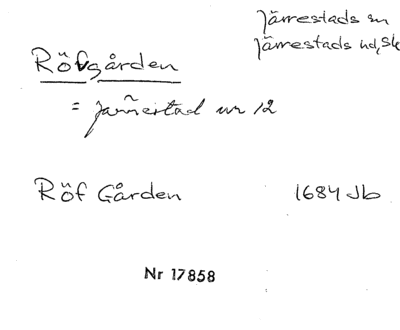 Järrestads sn
Järrestads hd, Sk
Rövgården
= Järrestad nr 12
Röf Gården 1684 Jb
Nr 17858